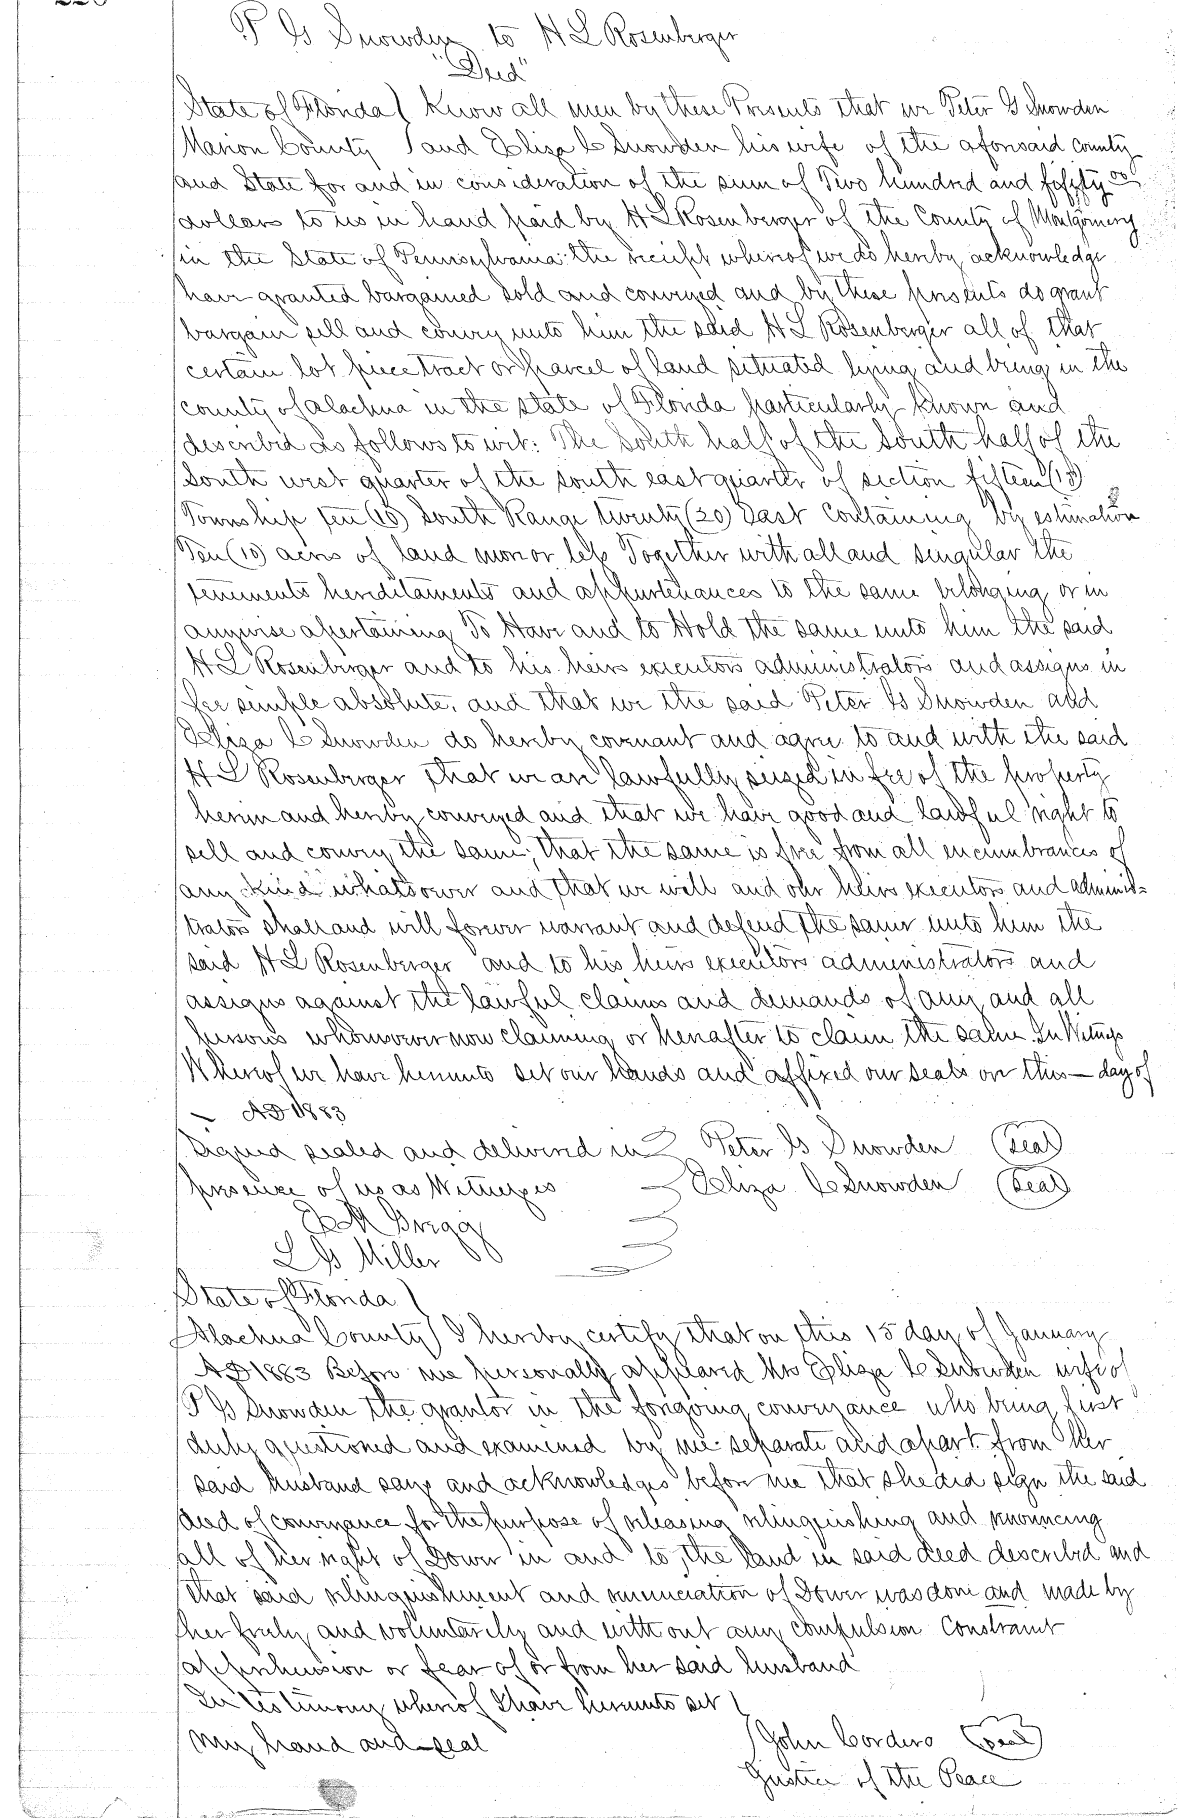 P G Snowden to H L Rosenberger
"Deed"
State of Florida ( Know all men by these Presents that we Peter G Snowden
Marion County ) and Eliza C Snowden his wife of the aforesaid County
and State for and in consideration of the sum of Two hundred and fifty 00
dollars to us in hand paid by H L Rosenberger of the County of Montgomery
in the State of Pennsylvania the receipt whereof we do hereby acknowledge
have granted bargained sold and conveyed and by these presents do grant
bargain sell and convey unto him the said H L Rosenberger all of that
certain lot piece tract or parcel of land situated lying and being in the
county of Alachua in the state of Florida particularly known and
described as follows to wit: The South half of the South half of the
South west quarter of the south east quarter of section fifteen (15)
Township ten (10) South Range twenty (20) East Containing by estimation
Ten (10) acres of land more or less Together with all and singular the
tenements hereditaments and appurtenances to the same belonging or in
anywise apertaining To Have and to Hold the same unto him the said
H L Rosenberger and to his heirs executors administrators and assigns in
fee simple absolute, and that we the said Peter G Snowden and
Eliza C Snowden do hereby covenant and agree to and with the said
H L Rosenberger that we are lawfully seized in fee of the property
herein and hereby conveyed and that we have good and lawful right to
sell and convey the same; that the same is free from all encumbrances of
any kind whatsoever and that we will and our heirs executors and adminis=
trators shall and will forever warrant and defend the same unto him the
said H L Rosenberger and to his heirs executors administrators and
assigns against the lawful claims and demands of any and all
persons whomsoever now claiming or hereafter to claim the same. In Witness
Whereof we have hereunto set our hands and affixed our seals on this — day of
— AD 1883
Signed sealed and delivered in Peter G Snowden (Seal)
presence of us as Witnesses Eliza C Snowden (Seal)
Gregg
L G Miller
State of Florida )
Alachua County ) I hereby certify that on this 15 day of January
AD 1883 Before me personally appeared Mrs Eliza C Snowden wife of
P G Snowden the grantor in the foregoing conveyance who being first
duly questioned and examined by me separate and apart from her
said husband says and acknowledges before me that she did sign the said
deed of conveyance for the purpose of releasing relinquishing and renouncing
all of her right of Dower in and to the land in said deed described and
that said relinquishment and renunciation of Dower was done and made by
her freely and voluntarily and without any compulsion Constraint
apprehension or fear of or from her said husband
In testimony whereof I have hereunto set )
my hand and seal John Cordero (Seal)
Justice of the Peace